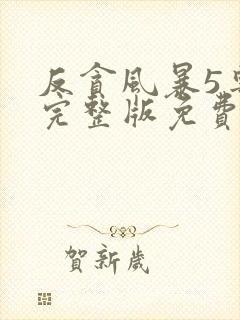 反貪風暴5
完整版免費
賀新歲